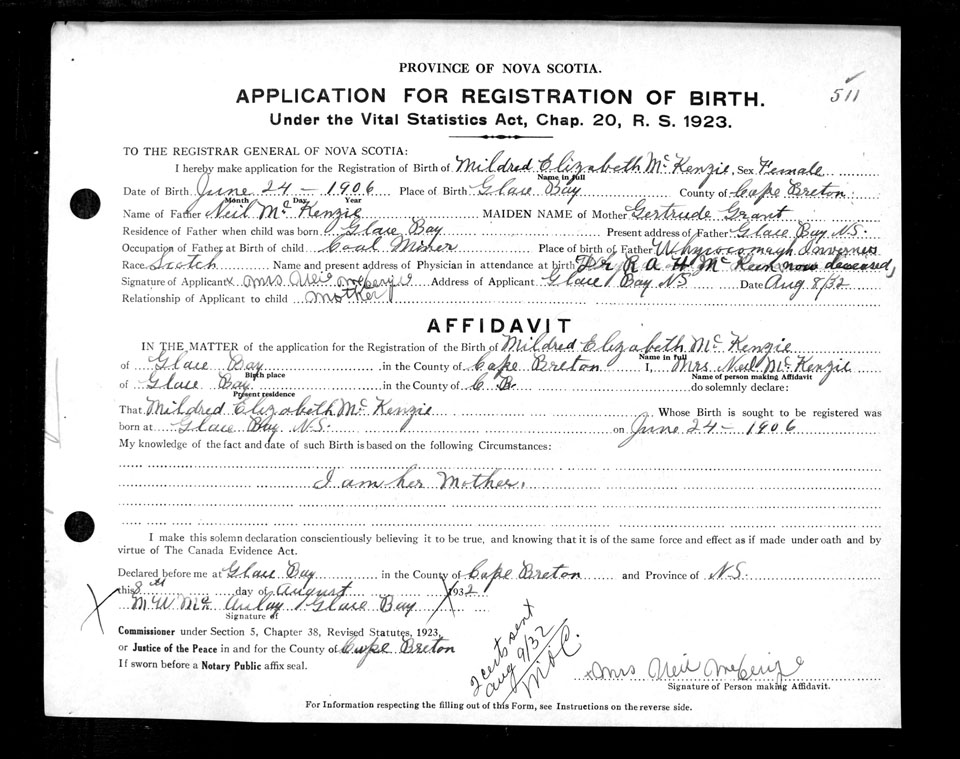 PROVINCE OF NOVA SCOTIA.
511
APPLICATION FOR REGISTRATION OF BIRTH.
Under the Vital Statistics Act, Chap. 20, R. S. 1923.
TO THE REGISTRAR GENERAL OF NOVA SCOTIA:
I hereby make application for the Registration of Birth of Mildred Elizabeth McKenzie, Sex Female
Name in full
Date of Birth June 24 - 1906 Place of Birth Glace Bay County of Cape Breton
Month Day Year
Name of Father Neil McKenzie MAIDEN NAME of Mother Gertrude Grant
Residence of Father when child was born Glace Bay Present address of Father Glace Bay N.S.
Occupation of Father at Birth of child Coal Miner Place of birth of Father Whycocomagh Inverness
Race Scotch Name and present address of Physician in attendance at birth Dr R A H McKeen now deceased,
Signature of Applicant x Mrs Neil McKenzie Address of Applicant Glace Bay N S Date Aug 8/32
Relationship of Applicant to child Mother
AFFIDAVIT
IN THE MATTER of the application for the Registration of the Birth of Mildred Elizabeth McKenzie
Name in full
of Glace Bay in the County of Cape Breton I, Mrs Neil McKenzie
Birth place Name of person making Affidavit
of Glace Bay in the County of C. B. do solemnly declare:
Present residence
That Mildred Elizabeth McKenzie Whose Birth is sought to be registered was
born at Glace Bay N.S. on June 24 - 1906
My knowledge of the fact and date of such Birth is based on the following Circumstances:
I am her Mother.
I make this solemn declaration conscientiously believing it to be true, and knowing that it is of the same force and effect as if made under oath and by
virtue of The Canada Evidence Act.
Declared before me at Glace Bay in the County of Cape Breton and Province of N.S.
this 8th day of August 1932
M W McAulay Glace Bay
Signature of
Commissioner under Section 5, Chapter 38, Revised Statutes, 1923,
or Justice of the Peace in and for the County of Cape Breton
If sworn before a Notary Public affix seal.
2 certs sent
Aug 9/32
x Mrs Neil McKenzie
Signature of Person making Affidavit.
For Information respecting the filling out of this Form, see Instructions on the reverse side.